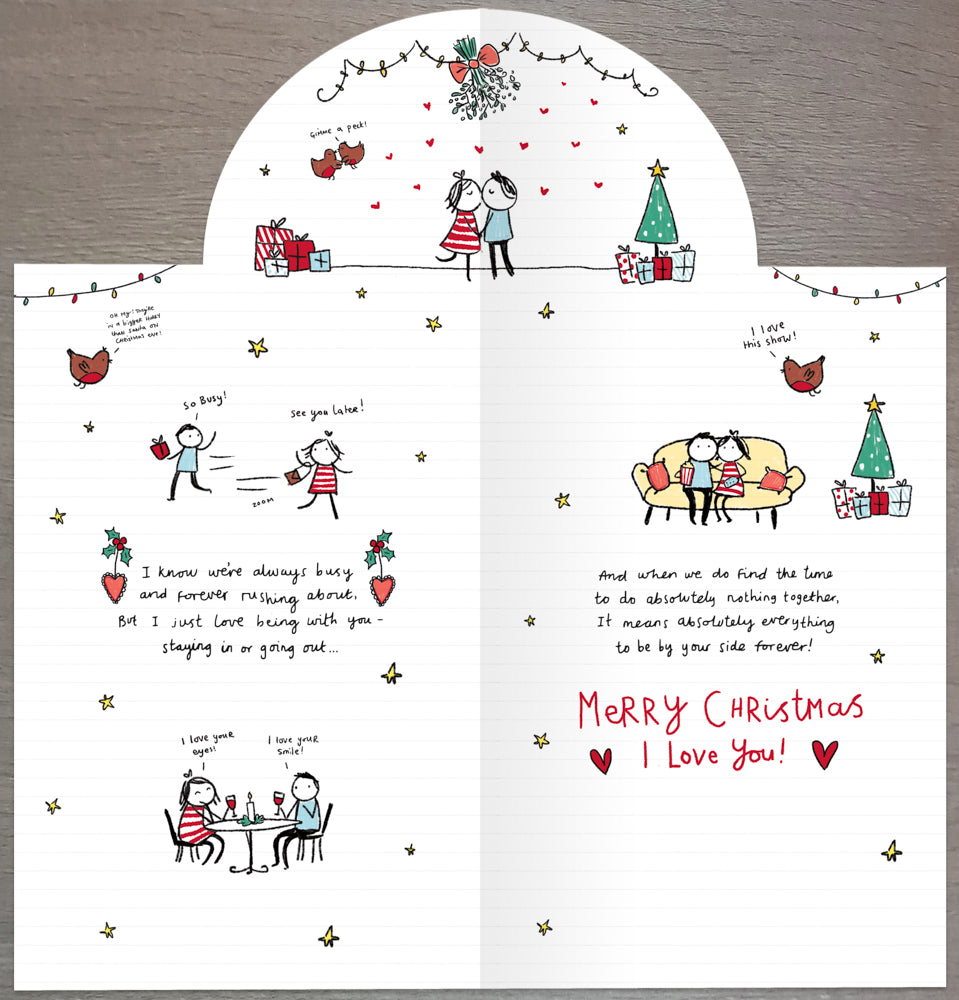 Gimme a peck!
OH MY! They're
in a bigger hurry
than Santa on
Christmas eve!
So Busy!
See you later!
ZOOM
I know we're always busy
and forever rushing about,
But I just love being with you –
staying in or going out...
I love your
eyes!
I love your
smile!
I love
this show!
And when we do find the time
to do absolutely nothing together,
It means absolutely everything
to be by your side forever!
MeRRy CHRistMas
I Love You!